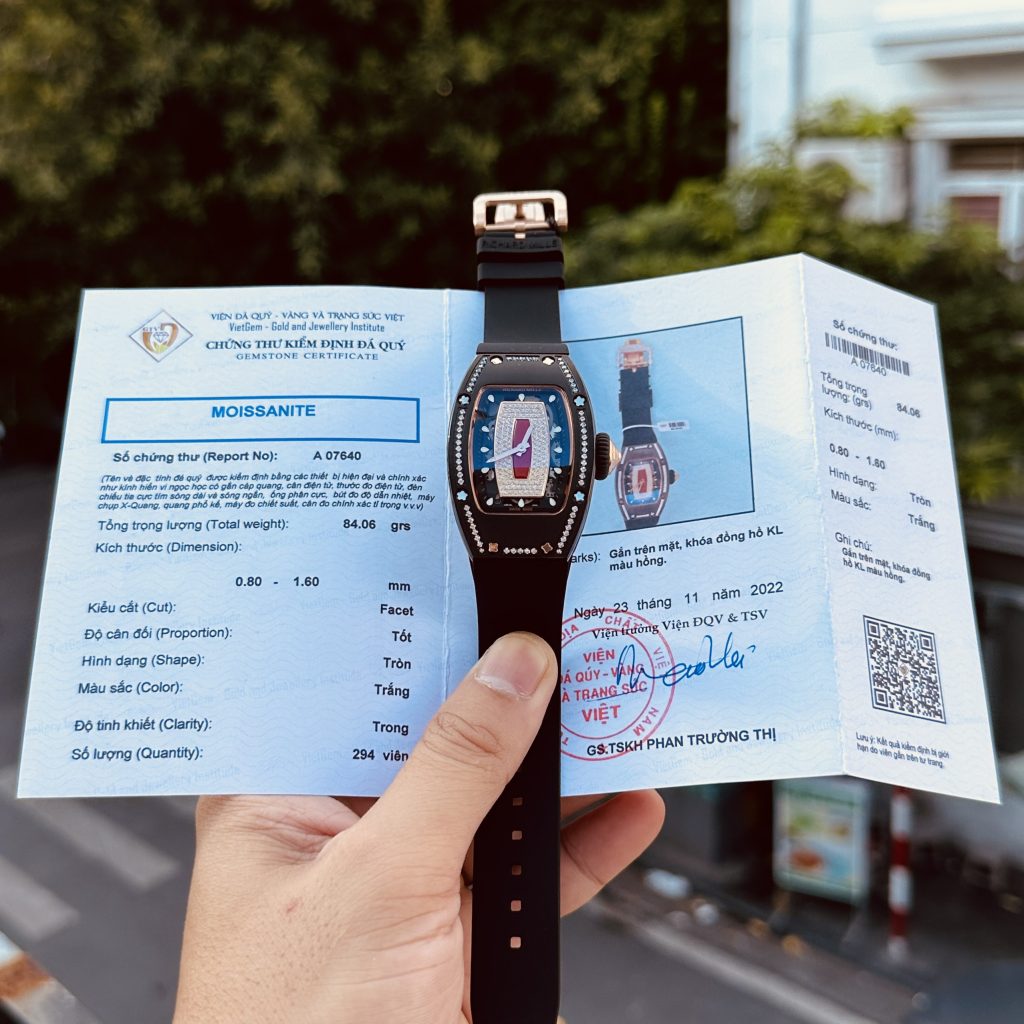 RICHARD MILLE
GIV
VIỆN ĐÁ QUÝ - VÀNG VÀ TRANG SỨC VIỆT
VietGem - Gold and Jewellery Institute
CHỨNG THƯ KIỂM ĐỊNH ĐÁ QUÝ
GEMSTONE CERTIFICATE
MOISSANITE
Số chứng thư (Report No): A 07640
(Tên và đặc tính đá quý được kiểm định bằng các thiết bị hiện đại và chính xác
như kính hiển vi ngọc học có gắn cáp quang, cân điện tử, thước đo điện tử, đèn
chiếu tia cực tím sóng dài và sóng ngắn, ống phân cực, bút đo độ dẫn nhiệt, máy
chụp X-Quang, quang phổ kế, máy đo chiết suất, cân đo chính xác tỉ trọng v.v.v)
Tổng trọng lượng (Total weight): 84.06 grs
Kích thước (Dimension):
0.80 - 1.60 mm
Kiểu cắt (Cut): Facet
Độ cân đối (Proportion): Tốt
Hình dạng (Shape): Tròn
Màu sắc (Color): Trắng
Độ tinh khiết (Clarity): Trong
Số lượng (Quantity): 294 viên
arks): Gắn trên mặt, khóa đồng hồ KL
màu hồng.
Ngày 23 tháng 11 năm 2022
Viện trưởng Viện ĐQV & TSV
VIỆN
ĐÁ QÚY-VÀNG
À TRANG SỨC
VIỆT
GS.TSKH PHAN TRƯỜNG THỊ
Số chứng thư:
A 07640
Tổng trọng
lượng: (grs) 84.06
Kích thước (mm):
0.80 - 1.60
Hình dạng: Tròn
Màu sắc: Trắng
Ghi chú:
Gắn trên mặt, khóa đồng
hồ KL màu hồng.
Lưu ý: Kết quả kiểm định bị giới
hạn do viên gắn trên tư trang.